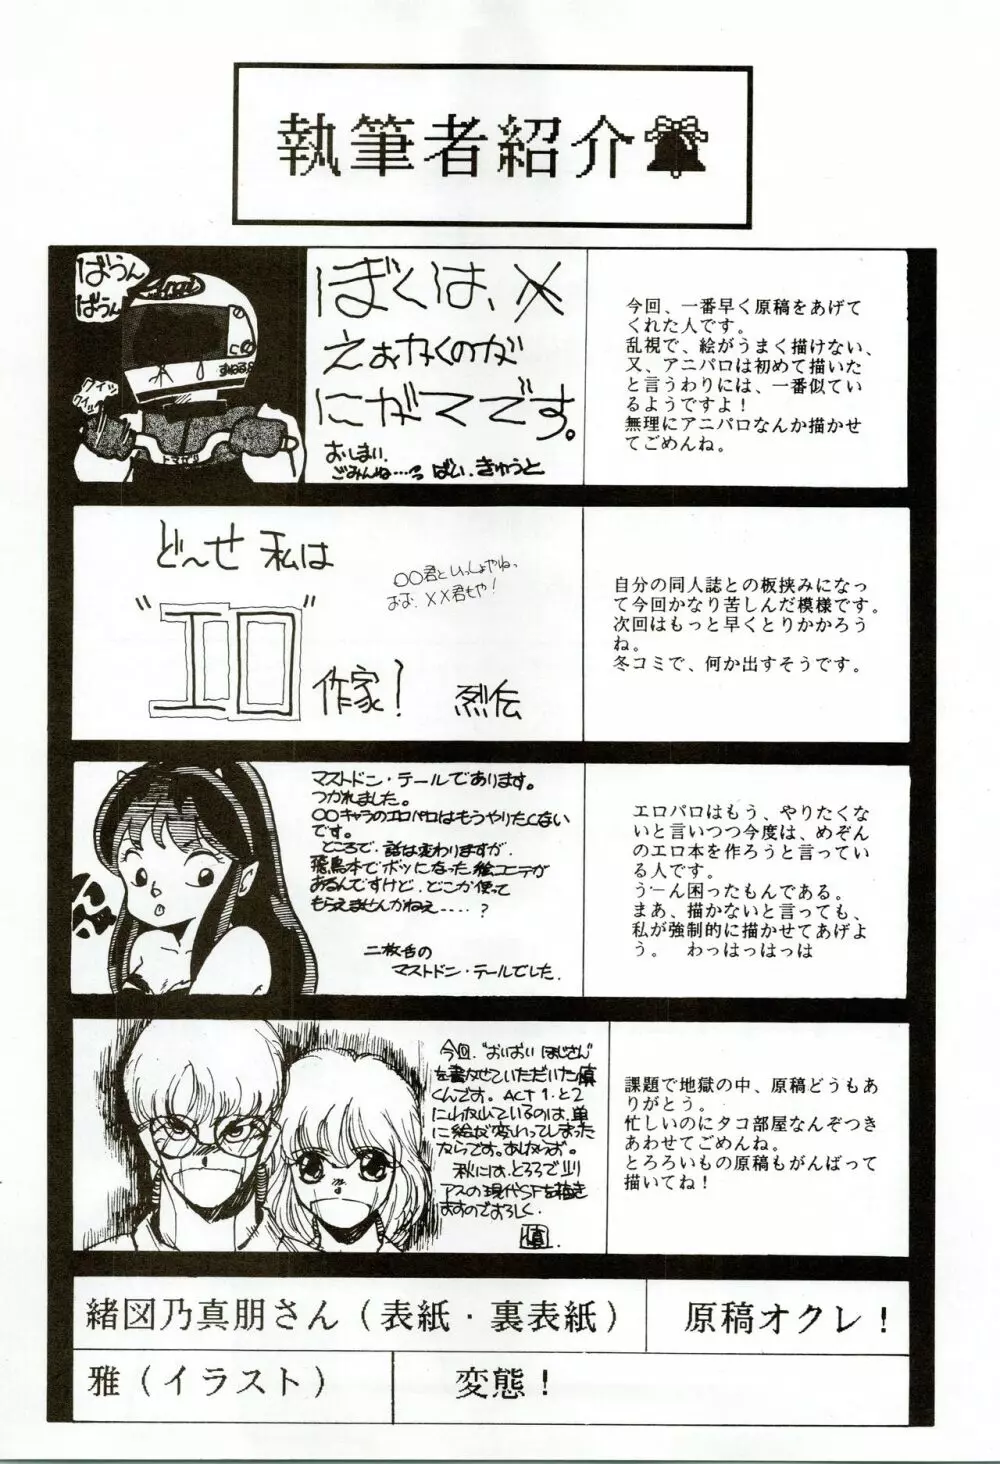 執筆者紹介
ばうん
ばうん
Arai
クイッ
クイッ
ぼくは、メ
えおかくのが
にがてです。
おしまい.
ごみんね……っ ばい.きゅうと
今回、一番早く原稿をあげて
くれた人です。
乱視で、絵がうまく描けない、
又、アニパロは初めて描いた
と言うわりには、一番似てい
るようですよ!
無理にアニパロなんか描かせ
てごめんね。
ど〜せ 私は
"エロ"
作家! 烈伝
〇〇君といっしょやね、
おお、××君もや!
自分の同人誌との板挟みになっ
て今回かなり苦しんだ模様です。
次回はもっと早くとりかかろう
ね。
冬コミで、何か出すそうです。
マストドン・テールであります。
つかれました。
〇〇キャラのエロパロはもうやりたくない
です。
ところで、話は変わりますが、
飛鳥本でボツになった絵コンテが
あるんですけど、どこか使って
もらえませんかねえ……?
二枚舌の
マストドン・テールでした.
エロパロはもう、やりたくな
いと言いつつ今度は、めぞん
のエロ本を作ろうと言ってい
る人です。
うーん困ったもんである。
まあ、描かないと言っても、
私が強制的に描かせてあげよ
う。 わっはっはっは
今回、"おいおい はじさん"
を書かせていただいた慎
くんです。ACT1.と2
にわかれているのは、単
に絵が変わってしまった
からです。あしからず。
秋には、とろろでシリ
アスの現代SFを描き
ますのでよろしく.
慎.
課題で地獄の中、原稿どうもあ
りがとう。
忙しいのにタコ部屋なんぞつき
あわせてごめんね。
とろろいもの原稿もがんばって
描いてね!
緒図乃真朋さん(表紙・裏表紙)
原稿オクレ!
雅(イラスト)
変態!